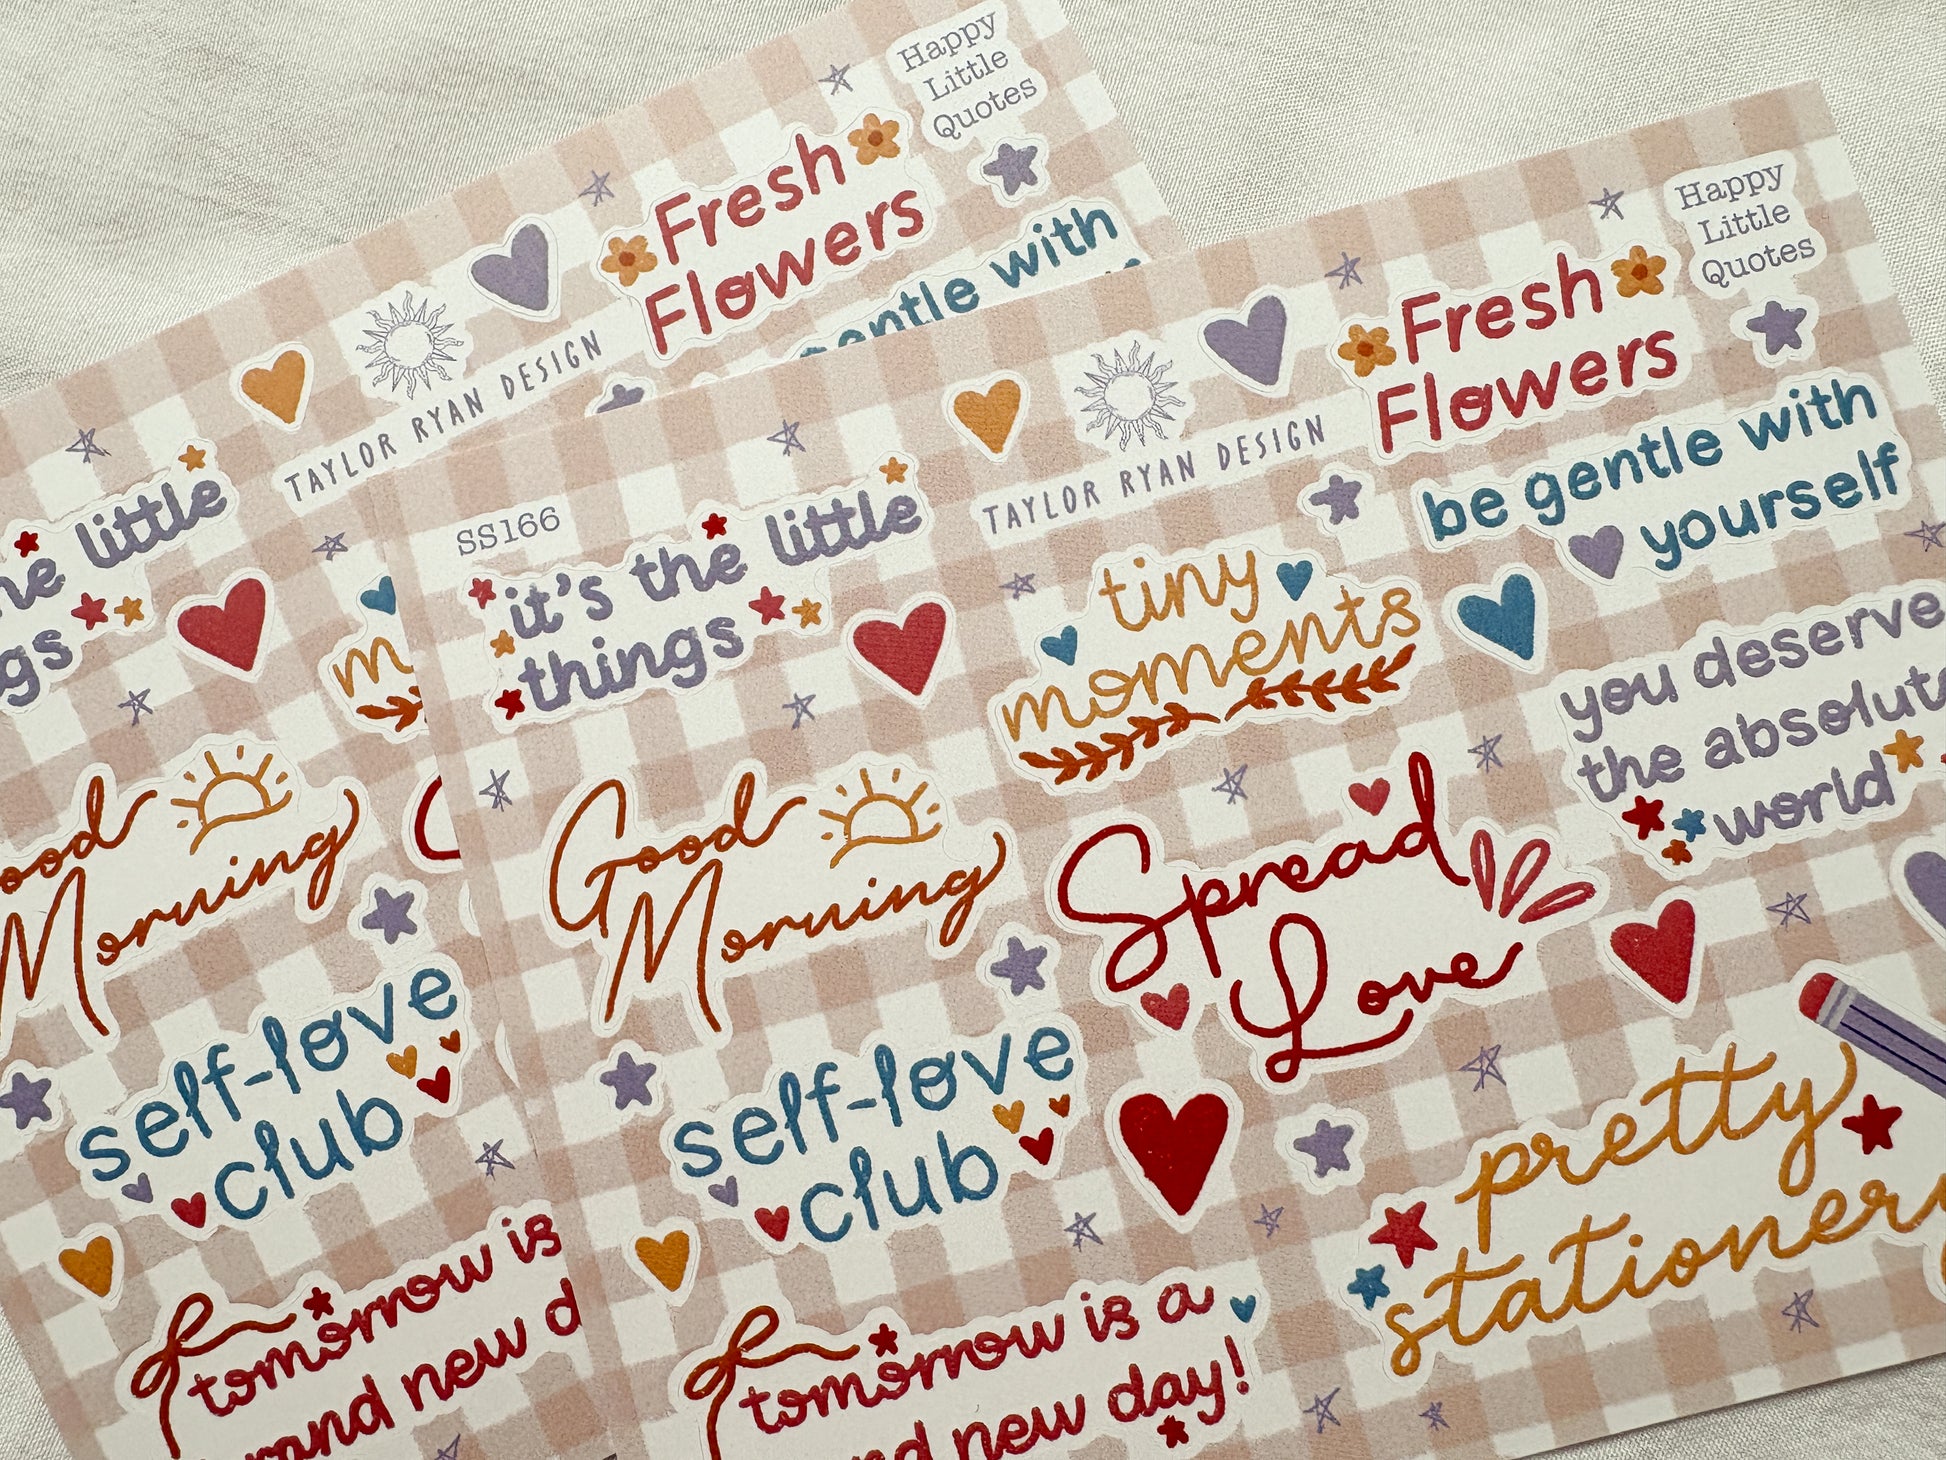 Happy
Little
Quotes
Fresh
Flowers
gentle with
TAYLOR RYAN DESIGN
the little
things
Good
Morning
self-love
club
tomorrow is
brand new d
Happy
Little
Quotes
Fresh
Flowers
TAYLOR RYAN DESIGN
be gentle with
yourself
SS166
it's the little
things
tiny
moments
you deserve
the absolute
world
Good
Morning
Spread
Love
self-love
club
pretty
stationery
tomorrow is a
brand new day!